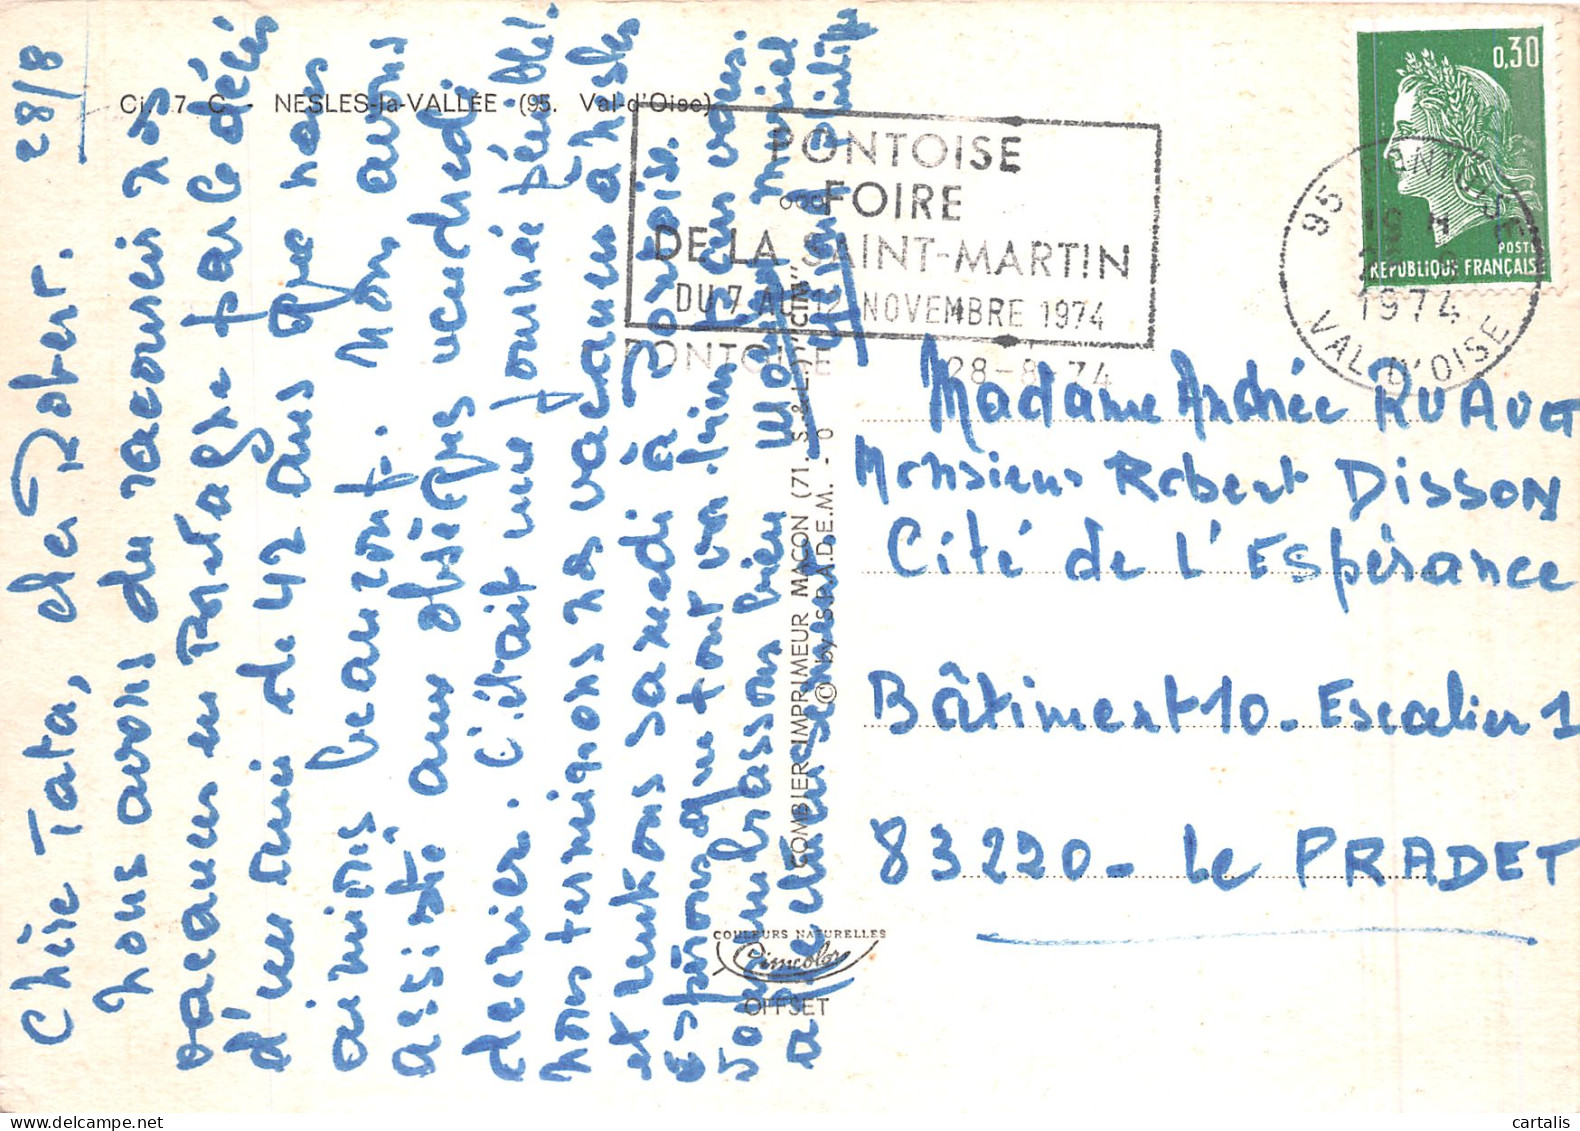 28/8
Chère Tata, cher Robert.
nous avons du raccourcir nos
vacances en Bretagne par le décès
d'un ami de 42 ans que nous
aimions beaucoup. Nous avons
assisté aux obsèques vendredi
dernier. C'était une journée pénible!
nous terminons nos vacances à Nesles
et rentrons samedi à Pontoise.
espérons que tout va bien chez vous.
vous embrassons bien Muriel
affectueusement Philippe
Ci. 7. C - NESLES-la-VALLÉE (95. Val-d'Oise)
COMBIER IMPRIMEUR MACON (71. S.-&-L.) "CIM"
© by S.P.A.D.E.M. - 0
COULEURS NATURELLES
Cimcolor
OFFSET
PONTOISE
FOIRE
DE LA SAINT-MARTIN
DU 7 AU 12 NOVEMBRE 1974
PONTOISE 28-8-74
95 PONTOISE
1974
VAL D'OISE
0,30
POSTES
REPUBLIQUE FRANÇAISE
Madame Andrée RUAULT
Monsieur Robert DISSON
Cité de L'Espérance
Bâtiment 10 - Escalier 1
83220 - Le PRADET
cartalis